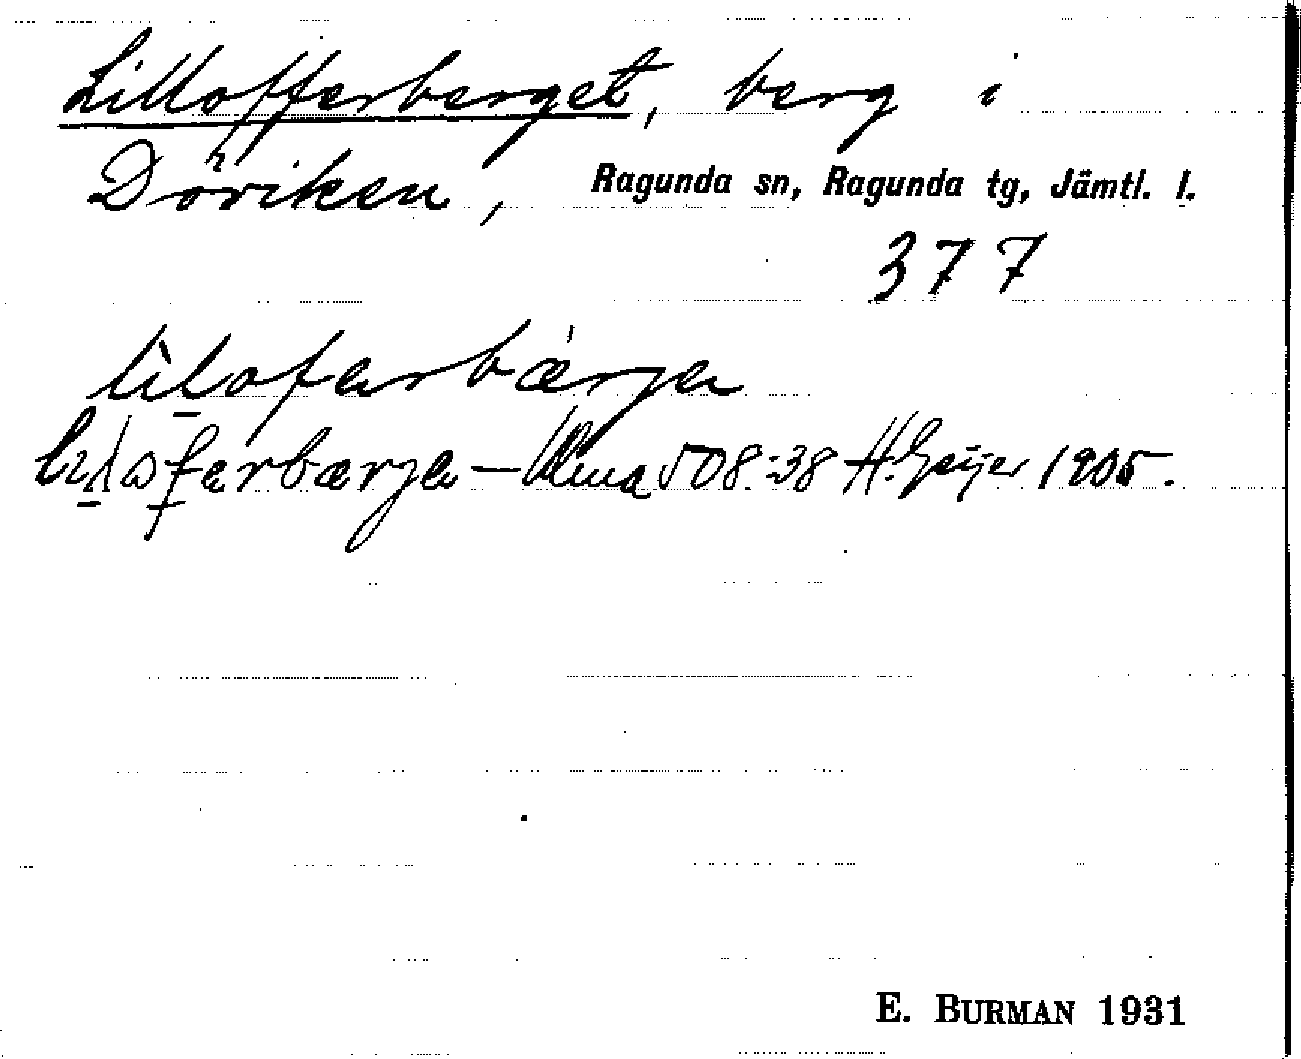 Lillofferberget, berg i
Döviken, Ragunda sn, Ragunda tg, Jämtl. l.
377
lìl̠ofərbǽrjə
Ulma 508:38 H. Geijer 1905.
E. BURMAN 1931